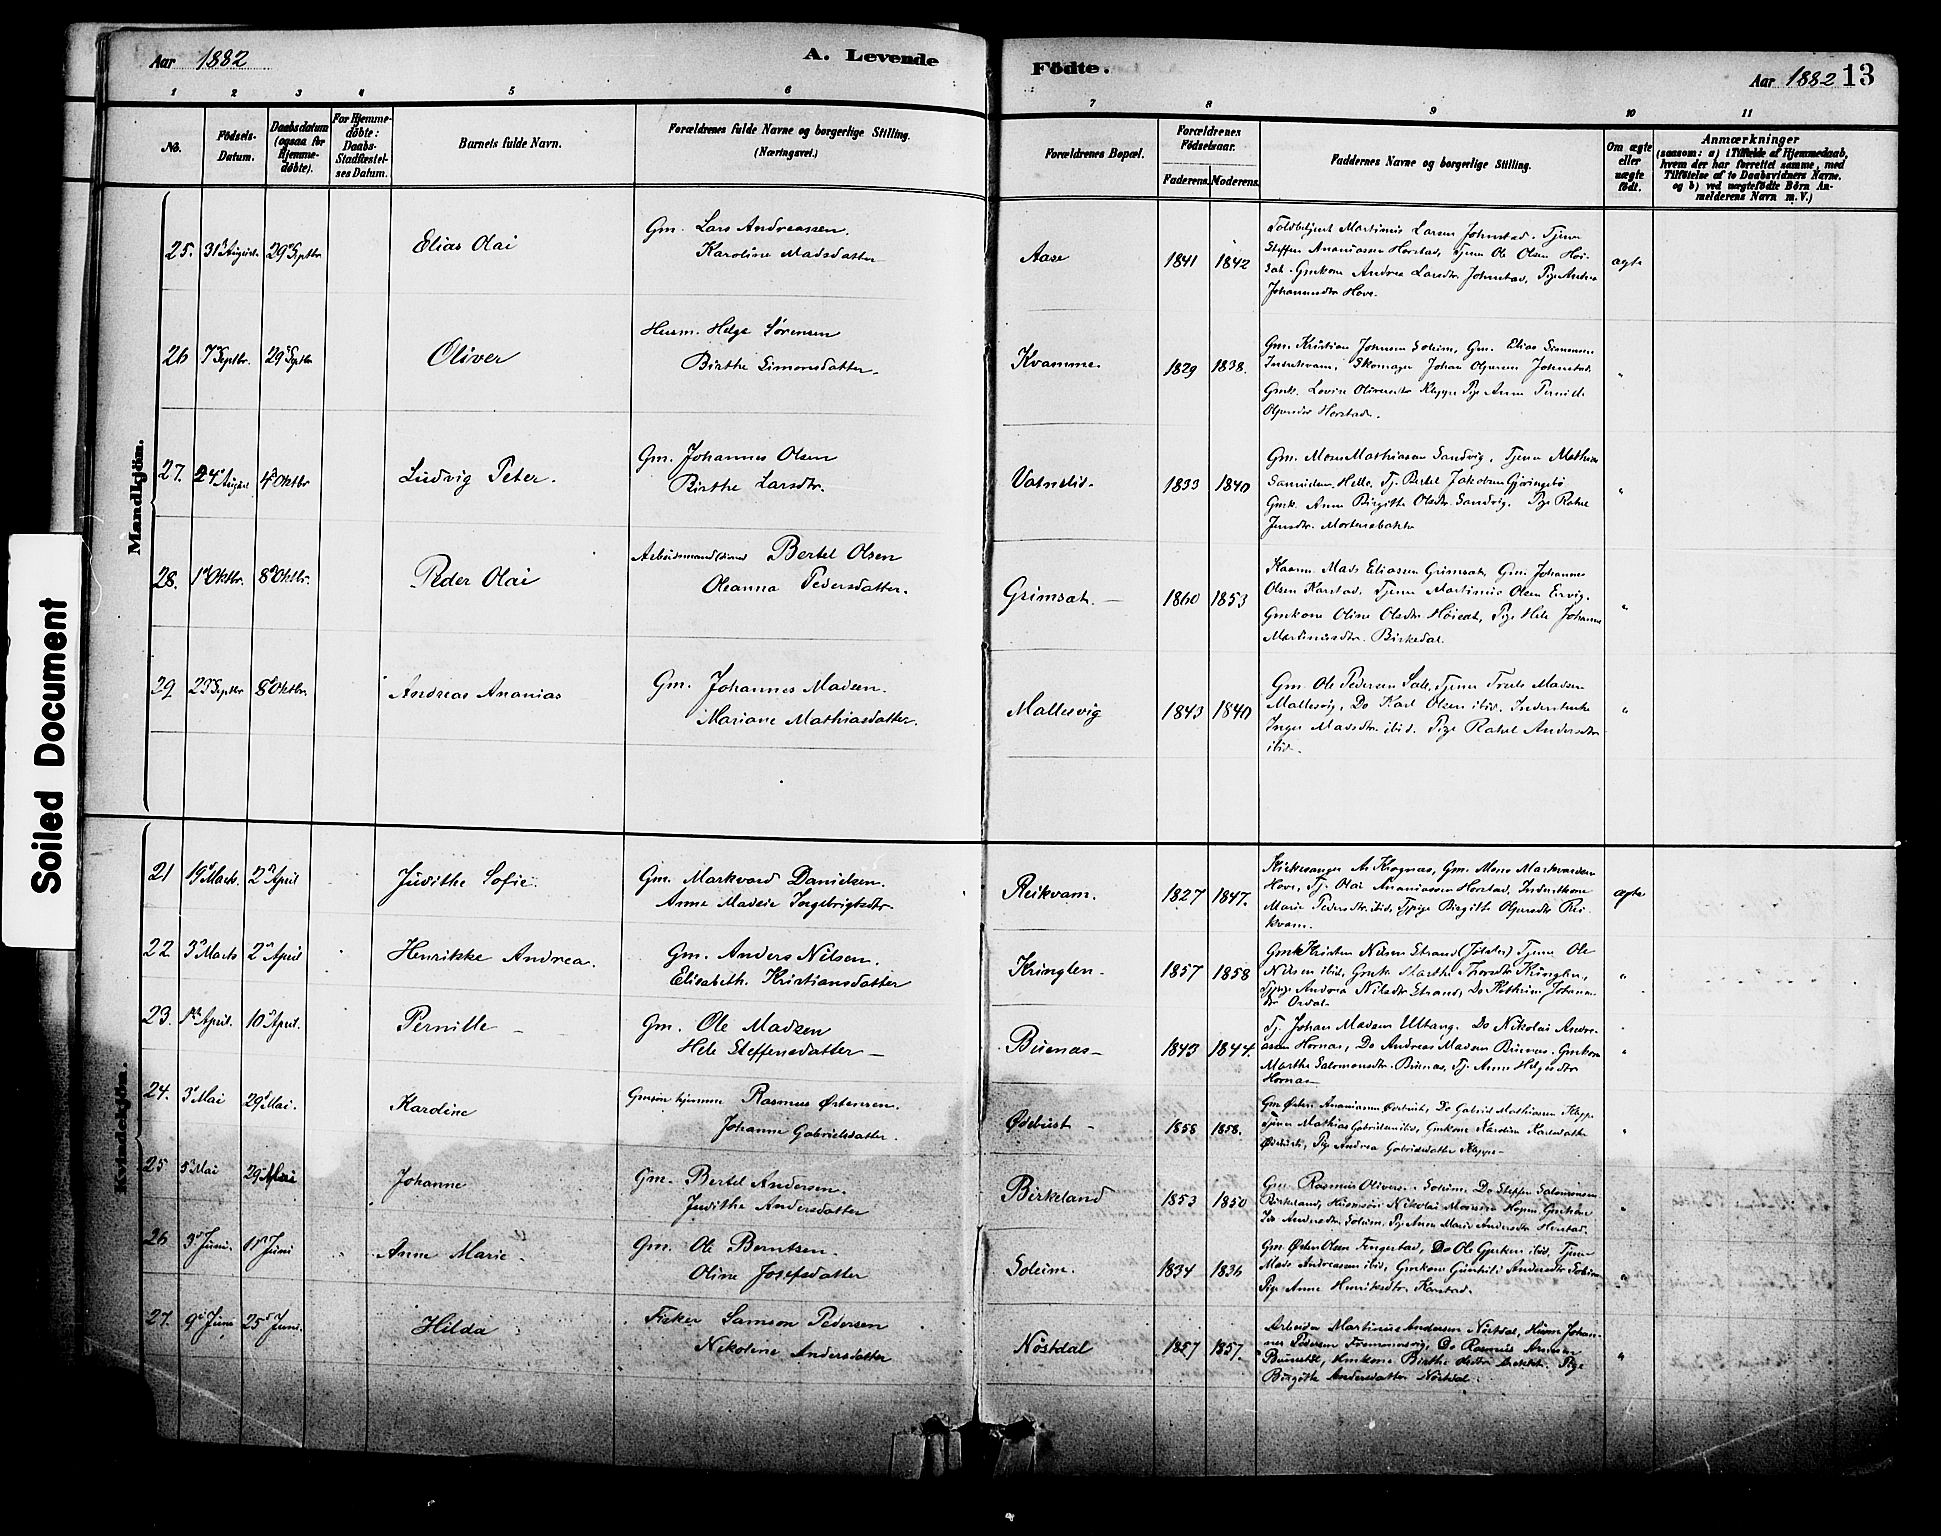 Aar 1882
A. Levende
Fødte.
Aar 1882 13
1 2 3 4 5 6 7 8 9 10 11
No.
Fødsels-
Datum.
Daabsdatum
(ogsaa for
Hjemme-
døbte).
For Hjemme-
døbte:
Daabs-
Stadfæstel-
ses Datum.
Barnets fulde Navn.
Forældrenes fulde Navne og borgerlige Stilling.
(Næringsvei.)
Forældrenes Bopæl.
Forældrenes
Fødselsaar.
Faderens. Moderens.
Faddernes Navne og borgerlige Stilling.
Om ægte
eller
uægte
født.
Anmærkninger
(saasom: a) i Tilfælde af Hjemmedaab,
hvem der har forrettet samme, med
Tilføielse af to Daabsvidners Navne,
og b) ved uægtefødte Børn An-
melderens Navn m. V.)
Mandkjön.
25. 31 August. 29 Septbr Elias Olai
Gm. Lars Andreassen.
Karoline Madsdatter
Aase 1841 1842
Martinus Larsen Johnstad. Tjener
Steffen Ananiassen Horstad, Tjener Ole Olsen Høi-
Gmkone Andrea Larsdtr Johnstad, Pige Andrea
Hove.
ægte
26 7 Septbr. 29 Septbr Oliver
Husm. Helge Sørensen
Birthe Simonsdatter.
Kvamme. 1829 1838.
Gm. Kristian Johnsen Soleim, Gm. Elias Simonsen
Indrekvam, Skomager Johan Olsen Johnstad.
Gmk. Lovise Oliversdtr Kleppe Pige Anne Pernille
Horstad.
"
27. 24 August 4 Oktbr Ludvig Peter.
Gm. Johannes Olsen
Birthe Larsdtr.
Vatnelid. 1833 1840
Gm. Mons Mathiassen Sandvig. Tjener Mathias
Helle. Tj. Bertel Jakobsen
Gmk. Anne Birgitte Olsdtr. Sandvig. Pige Rakel
Jensdtr. Mortensbakke
"
28. 1 Oktbr. 8 Oktbr. Peder Olai
Arbeidsmand Bertel Olsen
Oleanna Pedersdatter.
Grimsæt. 1860 1853
Mads Eliassen Grimsæt, Gm. Johannes
Olsen Karstad, Tjener Martinus Olsen Ervig.
Gmkone Oline Olsdtr Høisæt, Pige Hele Johanne
Martinusdtr. Birkedal.
"
29 23 Septbr 8 Oktbr. Andreas Ananias
Gm. Johannes Madsen.
Mariane Mathiasdatter.
Mallesvig 1843 1840
Gm. Ole Pedersen Sale, Tjener Truls Madsen
Mallesvig, Do Karl Olsen ibid. Inderstenke
Inger Madsdtr. ibid. Pige Rakel Andersdtr
ibid.
"
Kvindekjön.
21 19 Marts 2 April Judithe Sofie.
Gm. Markvard Danielsen.
Anne Madsie Ingebrigtsdtr.
Reikvam. 1827 1847.
Kirkesanger A. Kragnæs, Gm. Mons Markvardsen
Hove, Tj. Olai Ananiassen Horstad, Inderstkone
Marie Pedersdtr. ibid, Tjpige Birgitte Olsdtr Rei-
kvam.
ægte
22 3 Marts 2 April Henrikke Andrea.
Gm. Anders Nilsen.
Elisabeth. Kristiansdatter
Kringlen. 1857 1858
Gmk Kristen Nilsen Strand (Jølster) Tjener Ole
Nilsen ibid, Gmk. Marthe Thoredtr Kringlen,
Tjpige Andrea Nilsdtr Strand, Do Kathrine Johanne-
dtr Ordal.
"
23. 1 April. 10 April. Pernille
Gm. Ole Madsen
Hele Steffensdatter
Buenæs 1843 1844.
Tj. Johan Madsen Ullang. Do Nikolai Andre-
assen Hornæs, Do Andreas Madsen Buenæs. Gmkone
Marthe Salomonsdtr. Buenæs, Tj. Anne Helgesdtr
Hornæs
"
24. 3 Mai 29 Mai. Karoline
Gmsøn hjemme Rasmus Østensen.
Johanne Gabrielsdatter.
Ødebust 1858 1858.
Gm Østen Ananiassen Ødebust, Do Gabriel Mathiassen Kleppe
Tjener Mathias Gabrielsen ibid, Gmkone Karoline Karlsdatter
Ødebust, Pige Andrea Gabrielsdatter Kleppe
"
25 5 Mai 29 Mai Johanne
Gm. Bertel Andersen.
Judithe Andersdatter
Birkeland 1853 1850
Gm. Rasmus Olivers. Soleim. Do Steffen Salomonsen
Birkeland, Husmsøn Nikolai Monsen Høyen, Gmkone
Andersdtr Soleim, Pg Anne Marie Andersdtr Horstad.
"
26 3 Juni. 11 Juni Anne Marie.
Gm. Ole Berntsen.
Oline Josefsdatter
Soleim. 1834 1836
Gm. Østen Olsen Fengestad, Do Ole Gjertsen ibid. Tjener
Mads Andreassen ibid, Gmkone Gunhild Andersdtr Soleim
Pige Anne Henriksdtr. Karstad.
"
27. 9 Juni 25 Juni. Hilda
Fisker Samson Pedersen
Nikoline Andersdatter
Nøstdal 1857 1857.
Arbeider Martinus Andersen Nøstdal, Husm Johan-
nes Pedersen Do Rasmus
Gmkone Birthe Olsdtr Pige
Birgitte Andersdatter Nøstdal.
"
Soiled Document